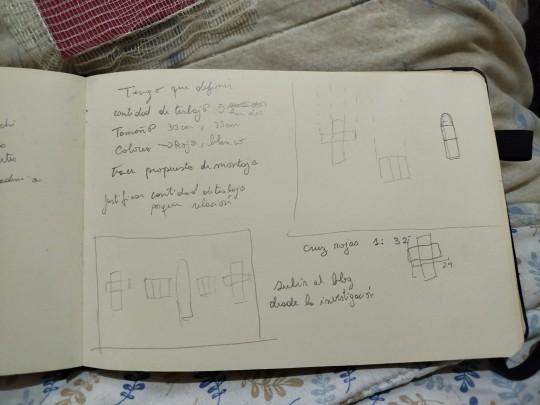 Tengo que definir
cantidad de trabajos
Tamaño 30cm, 25cm
Colores → Rojo, blanco
traer propuesta de montaje
justificar cantidad de trabajo
porque relación
Cruz rojas 1: 32
24
subir al blog
desde la investigación